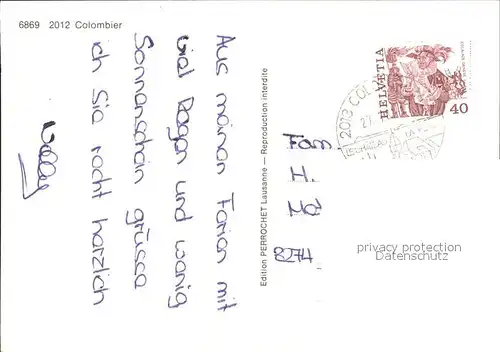 6869 2012 Colombier
Aus meinen Ferien mit
viel Regen und wenig
Sonnenschein grüsse
ich Sie recht herzlich
Willy
Edition PERROCHET Lausanne — Reproduction interdite
HELVETIA
40
2013 COLO
Fam.
H.
Md
8274
privacy protection
Datenschutz